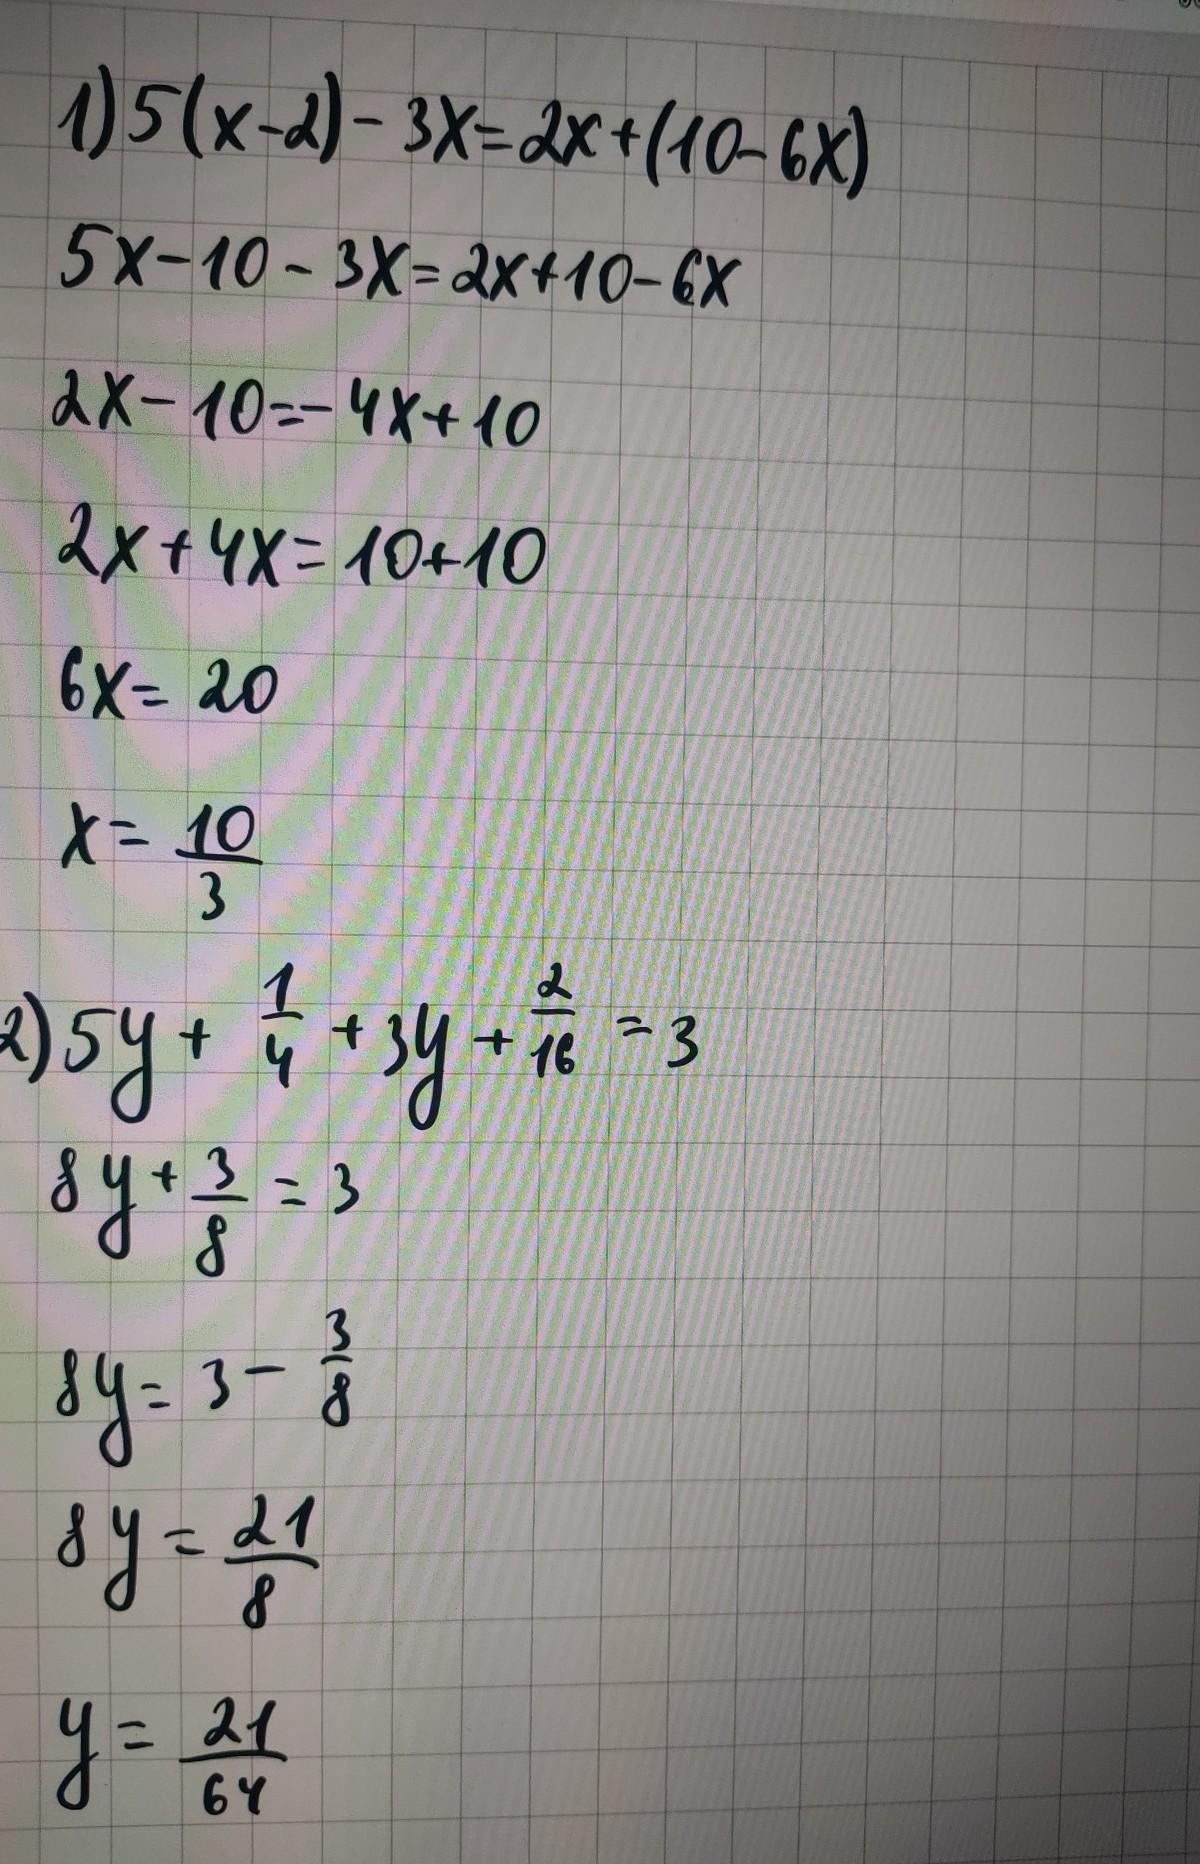 1) 5(x-2) - 3x = 2x + (10 - 6x)
5x - 10 - 3x = 2x + 10 - 6x
2x - 10 = - 4x + 10
2x + 4x = 10 + 10
6x = 20
x = 10/3
2) 5y + 1/4 + 3y + 2/16 = 3
8y + 3/8 = 3
8y = 3 - 3/8
8y = 21/8
y = 21/64